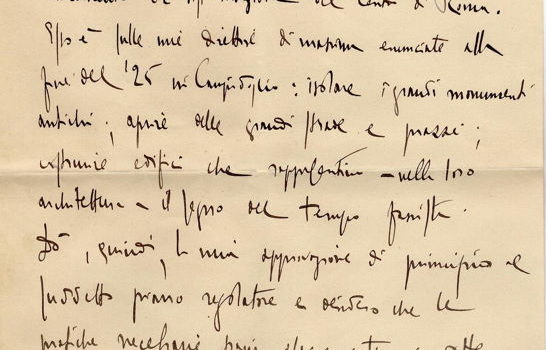 del centro di Roma.
Esso è sulle mie direttive di massima enunciate alla
fine del '25 in Campidoglio: isolare i grandi monumenti
antichi; aprire delle grandi strade e piazze;
costruire edifici che rappresentino – nella loro
architettura – il segno del tempo fascista.
Dò, quindi, la mia approvazione di principio al
suddetto piano regolatore e desidero che le
pratiche necessarie